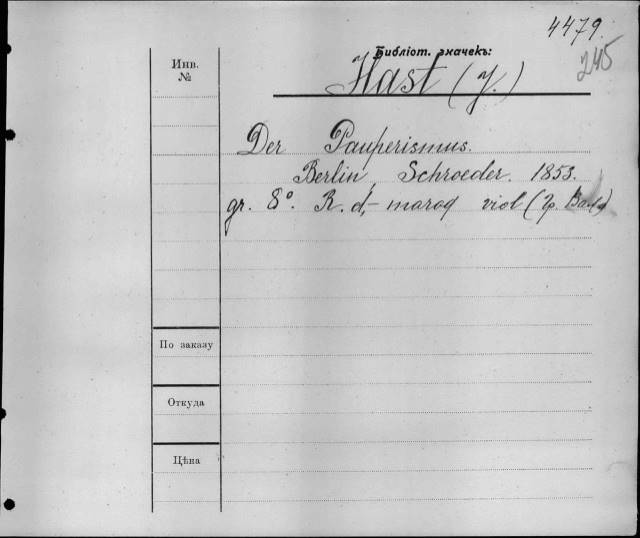 4479
Библіот. значекъ:
245
Инв.
№
Hast (J.)
Der Pauperismus.
Berlin, Schroeder. 1853.
gr. 8º. R. d,- maroq viol (
По заказу
Откуда
Цѣна